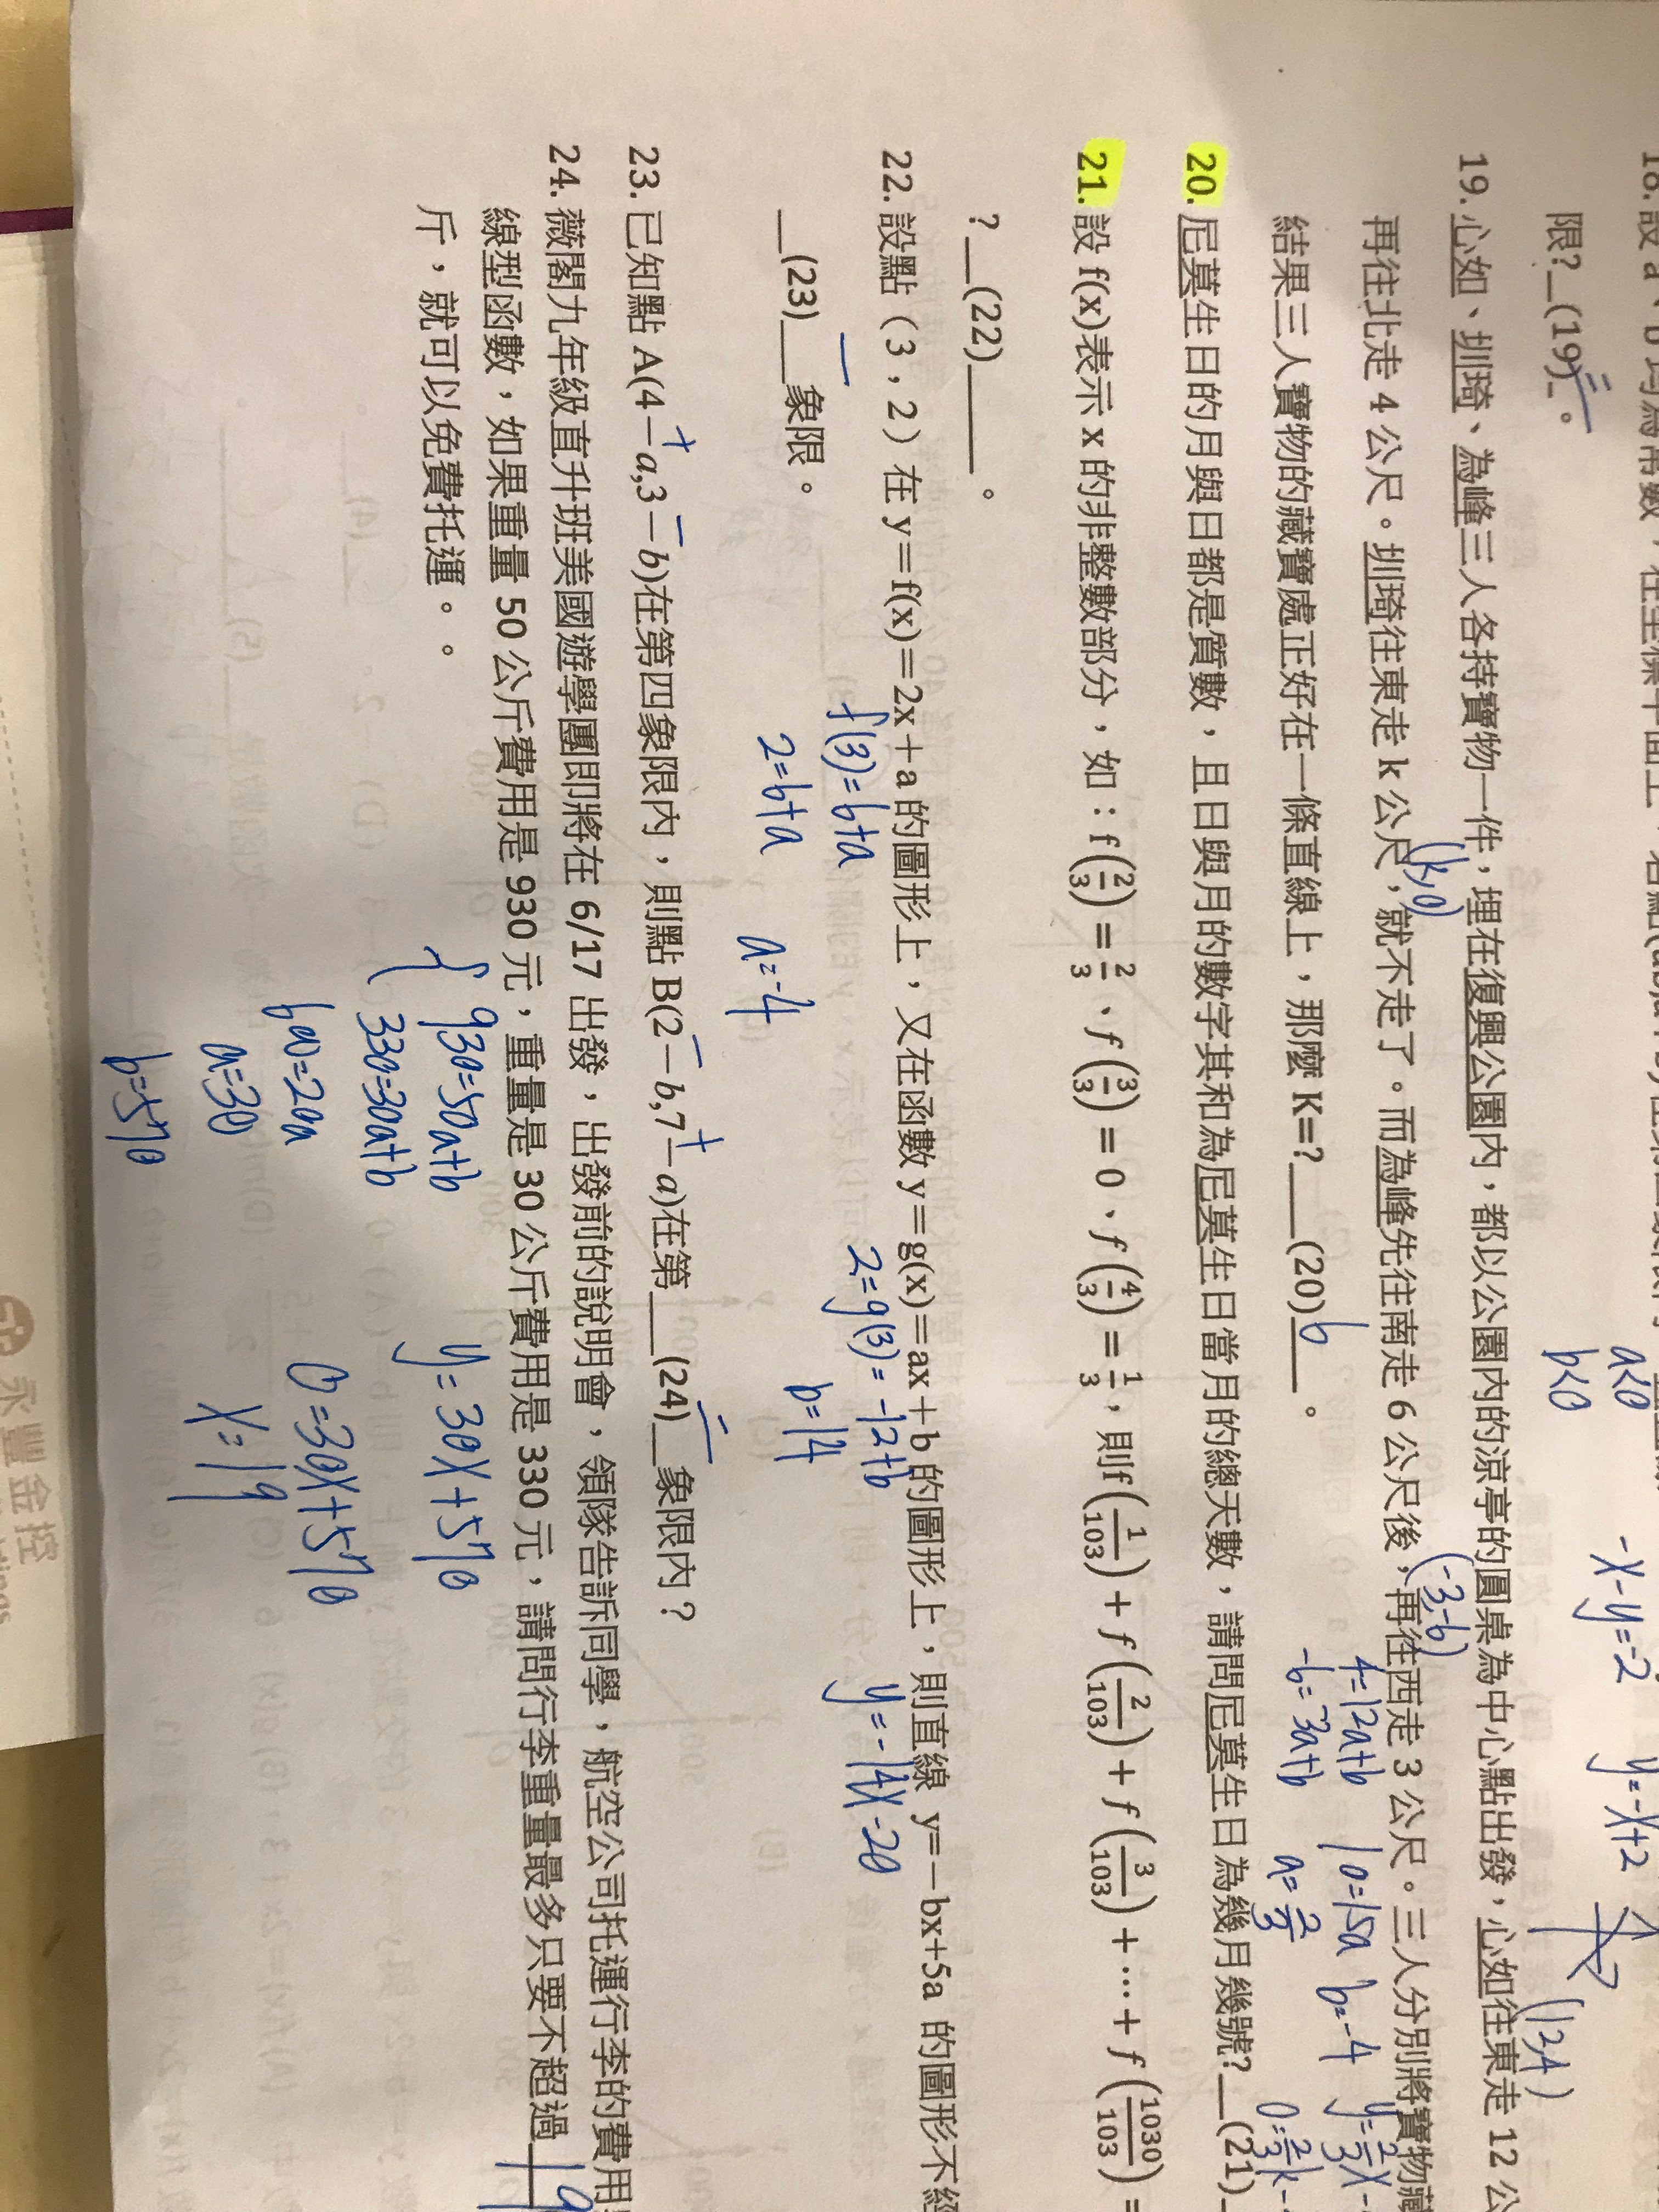 18.設 a、b 均為常數，在坐標平面上，若點(ab,a+b)在第四象限內
a<0
b<0
-x-y=-2
y=-x+2
限?__(19)__。
二
(12,4)
19.心如、圳琦、為峰三人各持寶物一件，埋在復興公園內，都以公園內的涼亭的圓桌為中心點出發，心如往東走 12 公
(k,0)
(-3,-6)
再往北走 4 公尺。圳琦往東走 k 公尺，就不走了。而為峰先往南走 6 公尺後，再往西走 3 公尺。三人分別將寶物藏
4=12a+b
-6=-3a+b
10=15a
a=2/3
b=-4
y=2/3x-
0=2/3k-
結果三人寶物的藏寶處正好在一條直線上，那麼 K=?____(20)6___。
20.尼莫生日的月與日都是質數，且日與月的數字其和為尼莫生日當月的總天數，請問尼莫生日為幾月幾號?__(21)_
21.設 f(x)表示 x 的非整數部分，如：f(2/3)=2/3、f(3/3)=0、f(4/3)=1/3，則f(1/103)+f(2/103)+f(3/103)+⋯+f(1030/103)=
?__(22)______。
22.設點（3，2）在 y=f(x)=2x+a 的圖形上，又在函數 y=g(x)=ax+b 的圖形上，則直線 y=-bx+5a 的圖形不經
f(3)=6+a
2=6+a
a=-4
2=g(3)=-12+b
b=14
y=-14x-20
__(23)___象限。
一
23.已知點 A(4-a,3-b)在第四象限內，則點 B(2-b,7-a)在第____(24)__象限內？
+
-
-
+
二
24.薇閣九年級直升班美國遊學團即將在 6/17 出發，出發前的說明會，領隊告訴同學，航空公司托運行李的費用
線型函數，如果重量 50 公斤費用是 930 元，重量是 30 公斤費用是 330 元，請問行李重量最多只要不超過
19
斤，就可以免費托運。。
930=50a+b
330=30a+b
600=20a
a=30
b=-570
y=30x+570
0=30x+570
x=19
永豐金控